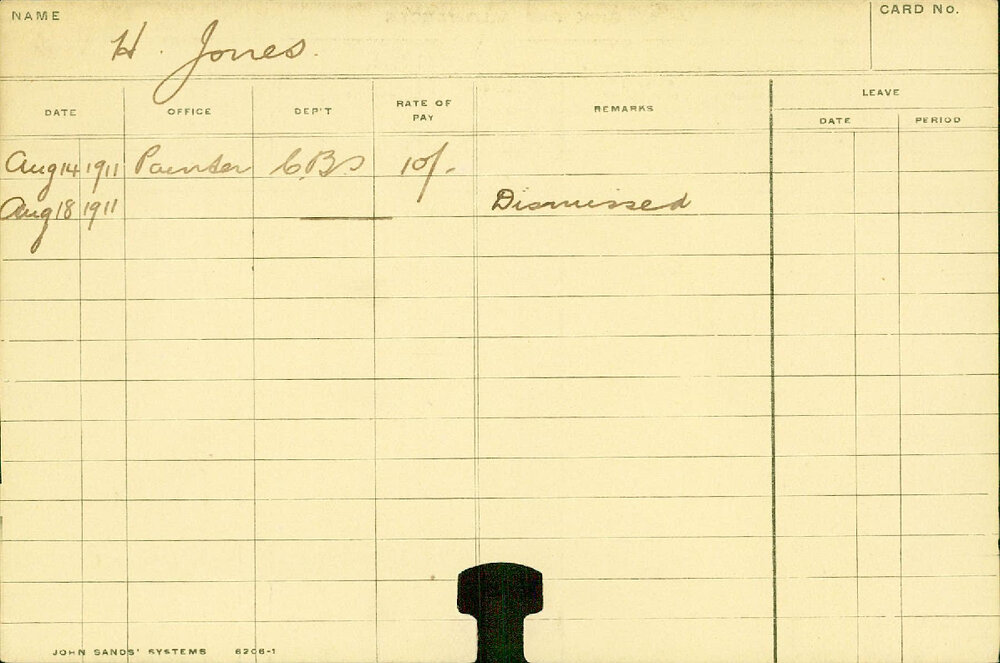 NAME
H. Jones.
CARD No.
DATE OFFICE DEP'T RATE OF PAY REMARKS LEAVE
DATE PERIOD
Aug 14 1911 Painter C.B.S 10/-
Aug 18 1911 Dismissed
JOHN SANDS' SYSTEMS 6206-1